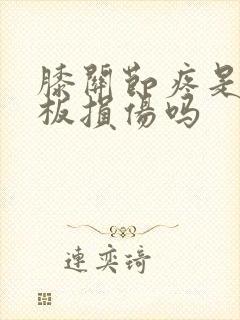 膝關節疼是
板損傷吗
連奕琦